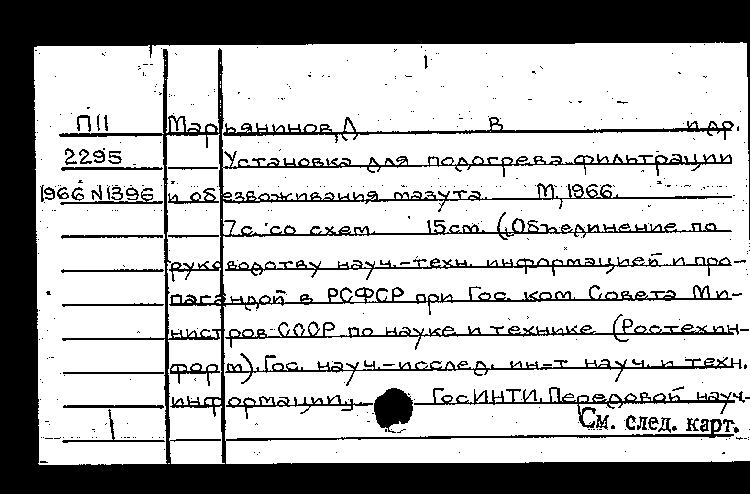 1
П11 Марьянинов, Д В и др.
2295 Установка для подогрева фильтрации
1966 N1396 и обезвоживания мазута. М, 1966.
7с. со схем. 15см. (Объединение по
руководству науч.-техн. информацией и про-
пагандой в РСФСР при Гос. ком. Совета Ми-
нистров СССР по науке и технике (Ростехин-
форм). Гос. науч.-исслед. ин-т науч. и техн.
информации. ГосИНТИ. Передовой науч.-
См. след. карт.